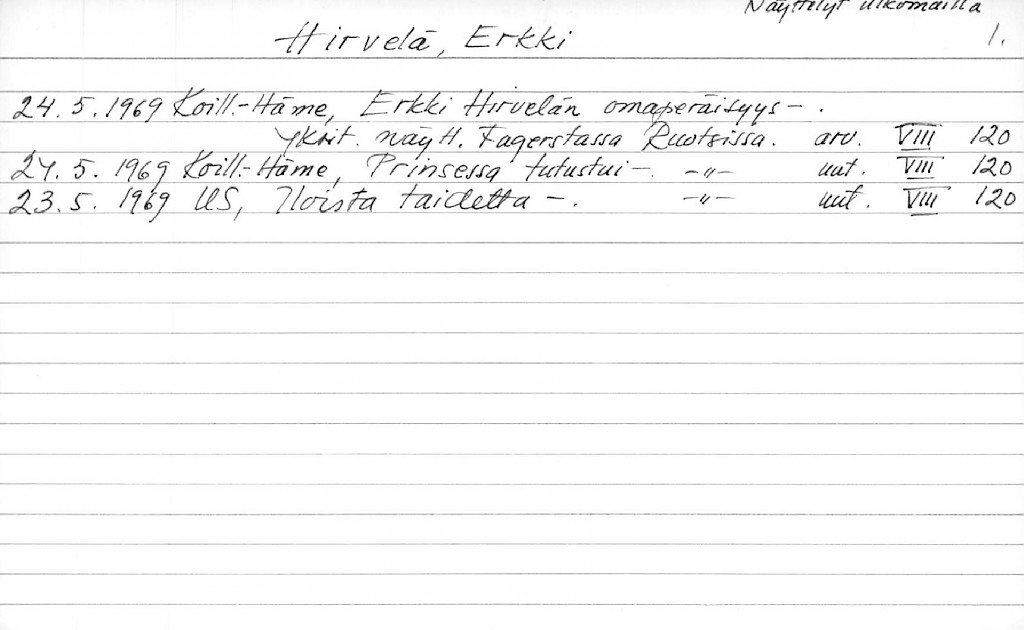 Näyttelyt ulkomailla
Hirvelä, Erkki 1.
24.5.1969 Koill.-Häme, Erkki Hirvelän omaperäisyys - .
yksit. näytt. Fagerstassa Ruotsissa. arv. VIII 120
24.5.1969 Koill.-Häme, Prinsessa tutustui -. -"- uut. VIII 120
23.5.1969 US, Iloista taidetta -. -"- uut. VIII 120